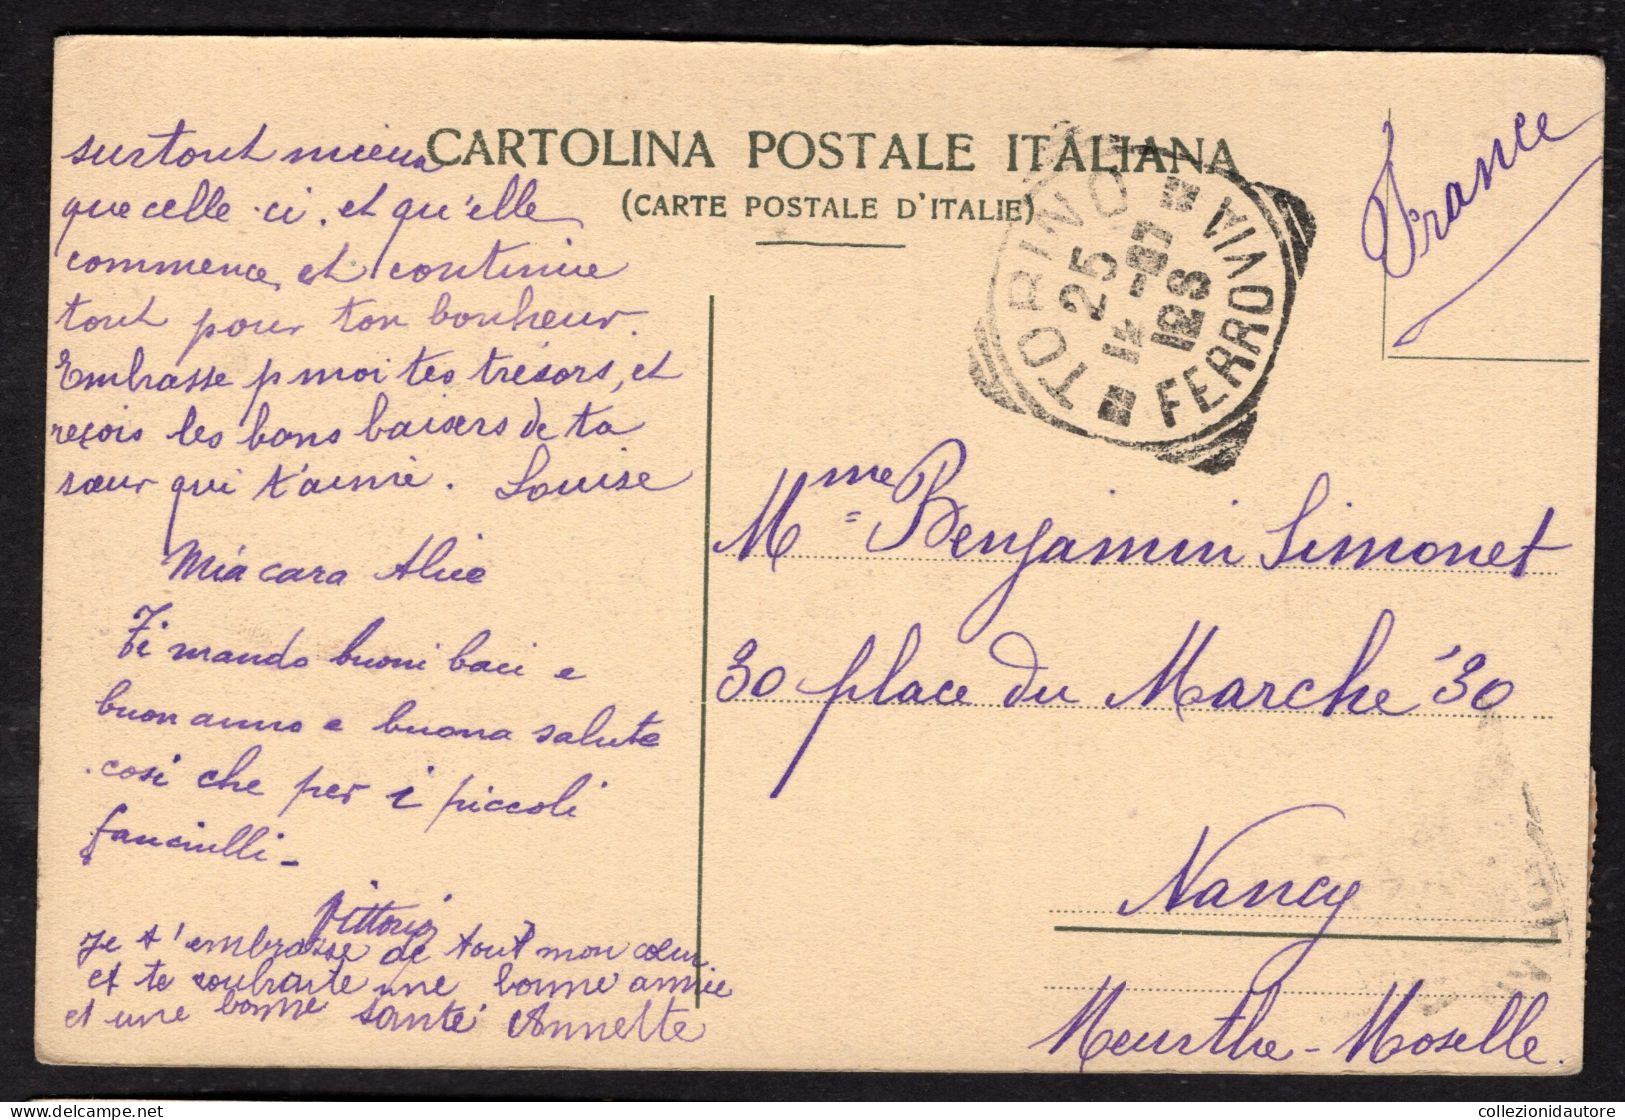 CARTOLINA POSTALE ITALIANA
(CARTE POSTALE D'ITALIE)
surtout mieux
que celle-ci, et qu'elle
commence, et continue
tout pour ton bonheur.
Embrasse p moi tes trésors, et
reçois les bons baisers de ta
sœur qui t'aime. Louise
Mia cara Alice
Ti mando buoni baci e
buon anno e buona salute
cosi che per i piccoli
fanciulli -
Vittorio
Je t'embrasse de tout mon cœur
et te souhaite une bonne année
et une bonne santé Annette
TORINO
25
12-07
12S
FERROVIA
France
Mme Benjamin Simonet
30 place du Marché 30
Nancy
Meurthe-Moselle.
collezionidautore
delcampe.net